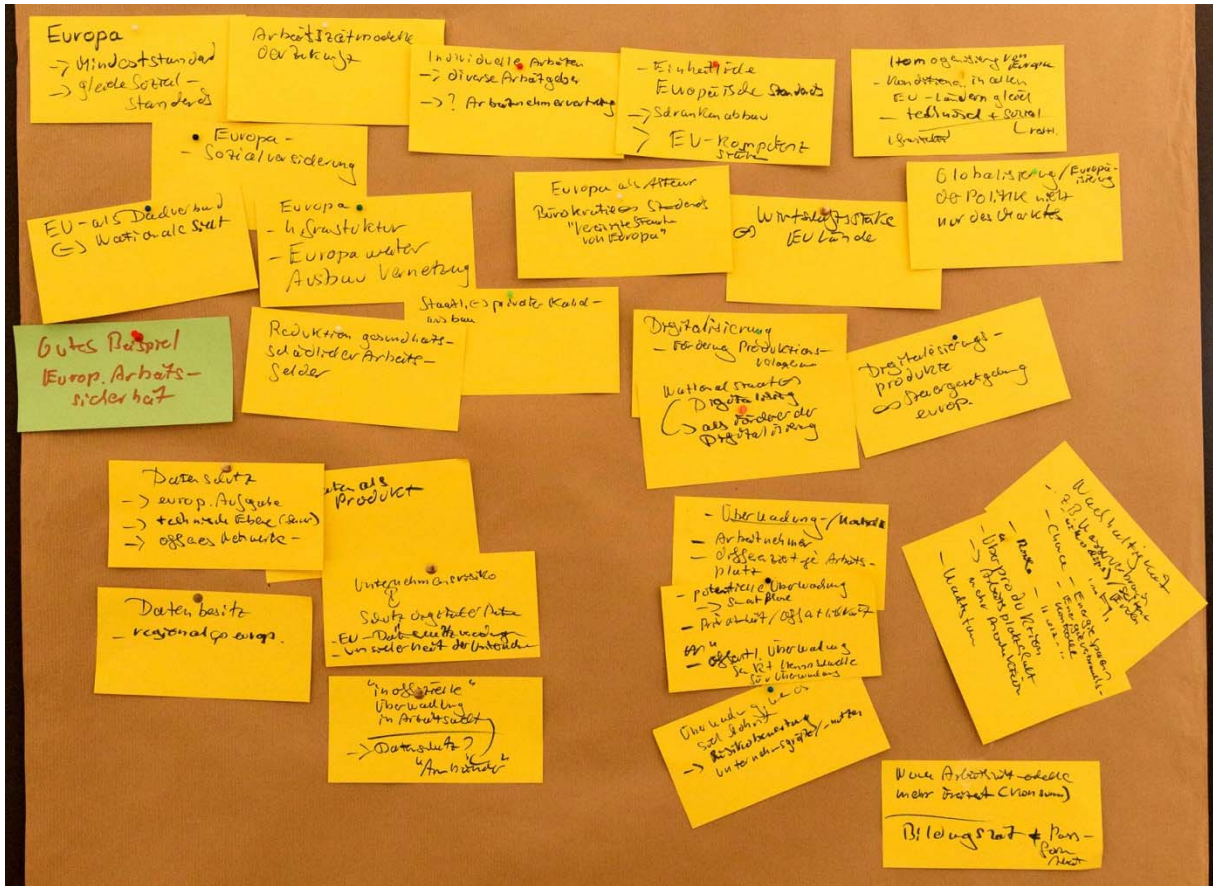 Europa
-> Mindeststandard
-> gleiche Sozial-
Standards
Arbeitszeitmodelle
der Zukunft
Individuelle Arbeiten
-> diverse Arbeitgeber
-> ? Arbeitnehmervertretung
- Einheitliche
Europäische Standards
-> Schrankenabbau
> EU-Kompetenz
Homogenisierung von Europa
- Konditionen in allen
EU-Ländern gleich
- technisch + sozial
Europa -
- Sozialversicherung
EU-als Dachverband
<-> Nationalstaat
Europa
- Infrastruktur
- Europaweiter
Ausbau Vernetzung
Europa als Akteur
Bürokratie Standards
"Vereinigte Staaten
von Europa"
Wirtschaftsstarke
EU Länder
Globalisierung/Europäi-
sierung
der Politik nicht
nur des Marktes
Staatl. <-> privater Kabel-
ausbau
Gutes Beispiel
Europ. Arbeits-
sicherheit
Reduktion gesundheits-
schädlicher Arbeits-
felder
Digitalisierung
- Förderung Produktions-
Nationalstaat
Digitalisierung
als Förderer der
Digitalisierung
Digitalisierungs-
produkte
Steuergesetzgebung
europ.
Datenschutz
-> europ. Aufgabe
-> technische Ebene
-> offenes Netzwerk -
Daten als
Produkt
Datenbesitz
- regional europ.
Unternehmensrisiko
Schutz digitaler Daten
- EU-
- Unsicherheit der
"inoffizielle"
Überwachung
in Arbeitswelt
-> Datenschutz?
"Armbänder"
- Überwachung-/Kontrolle
- Arbeitnehmer
- Arbeits-
platz
- potentielle Überwachung
-> Smartphone
- Privatheit/Öffentlichkeit
- öffentl. Überwachung
für Überwachung
Überwachung
sich lohnt
-> Risikobewertung
Unternehmensgröße/-nutzen
Nachhaltigkeit
- Chance - Energie sparen
- Energieverbrauchs-
kontrolle
- Risiko
- Überproduktion
-> Arbeitsplatzerhalt
mehr Produktion
- Wachstum
Neue Arbeitszeitmodelle
mehr Freizeit (Konsum)
Bildungszeit